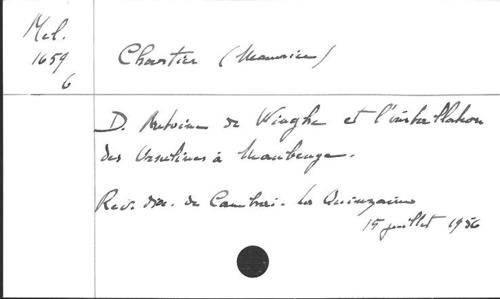 Mel.
1659
6
Chartier (Maurice)
D. Antoine de Winghe et l'installation
des Ursulines à Maubeuge.
Rev. dioc. de Cambrai. La Quinzaine
15 juillet 1956